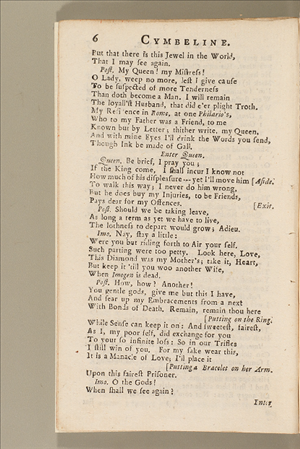 6 CYMBELINE.
Put that there is this Jewel in the World,
That I may see again.
Post. My Queen! my Mistress!
O Lady, weep no more, lest I give cause
To be suspected of more Tenderness
Than doth become a Man. I will remain
The loyall'st Husband, that did e'er plight Troth.
My Residence in Rome, at one Philario's,
Who to my Father was a Friend, to me
Known but by Letter; thither write, my Queen,
And with mine Eyes I'll drink the Words you send,
Though Ink be made of Gall.
Enter Queen.
Queen. Be brief, I pray you;
If the King come, I shall incur I know not
How much of his displeasure—yet I'll move him [Aside.
To walk this way; I never do him wrong,
But he does buy my Injuries, to be Friends,
Pays dear for my Offences. [Exit.
Post. Should we be taking leave,
As long a term as yet we have to live,
The lothness to depart would grow; Adieu.
Imo. Nay, stay a little:
Were you but riding forth to Air your self,
Such parting were too petty. Look here, Love,
This Diamond was my Mother's; take it, Heart,
But keep it 'till you woo another Wife,
When Imogen is dead.
Post. How, how? Another!
You gentle gods, give me but this I have,
And sear up my Embracements from a next
With Bonds of Death. Remain, remain thou here
[Putting on the Ring.
While Sense can keep it on: And sweetest, fairest,
As I, my poor self, did exchange for you
To your so infinite loss: So in our Trifles
I still win of you. For my sake wear this,
It is a Manacle of Love, I'll place it
[Putting a Bracelet on her Arm.
Upon this fairest Prisoner.
Imo. O the Gods!
When shall we see again?
Enter